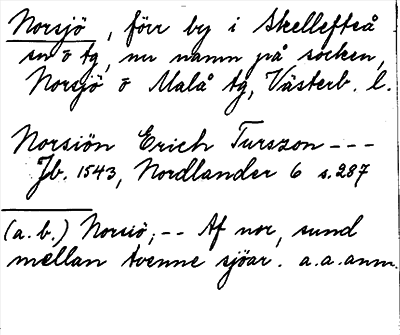 Norsjö, förr by i Skellefteå
sn o tg, nu namn på socken,
Norsjö o Malå tg, Västerb. l.
Norsiön Erich Turszon ---
Jb. 1543, Nordlander 6 s.287
(a.b.) Norsiö; -- Af nor, sund
mellan tvenne sjöar. a.a.anm.